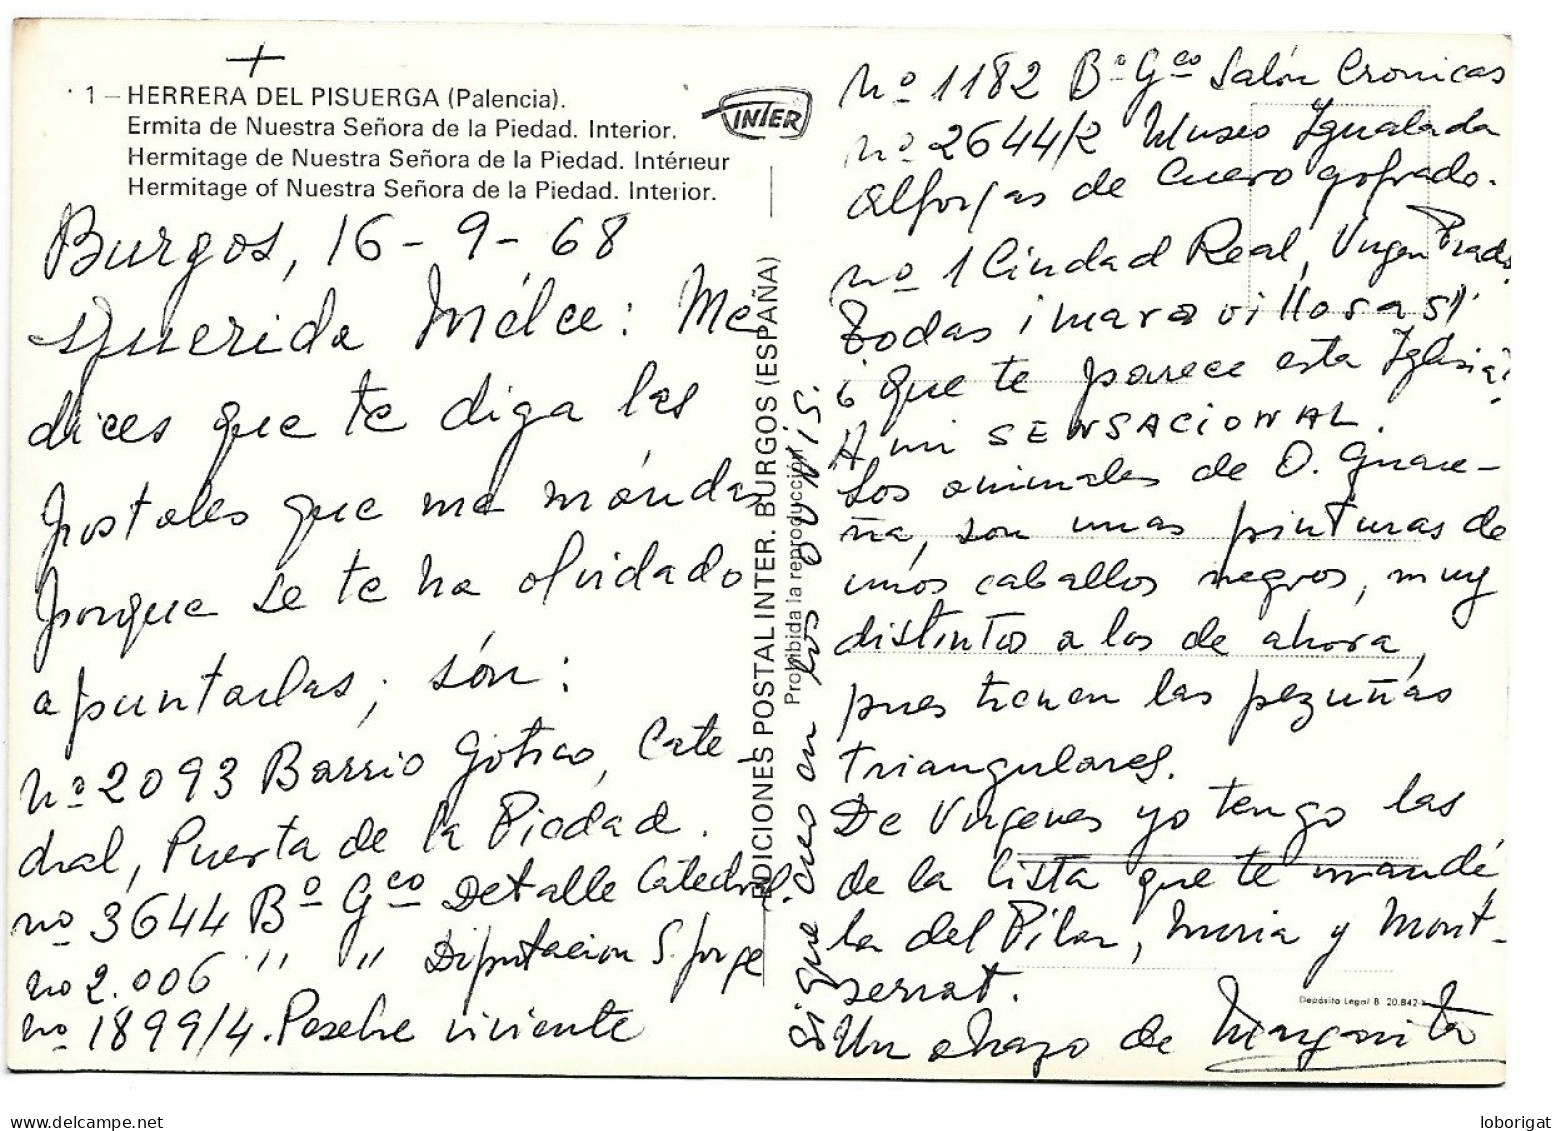 +
1 – HERRERA DEL PISUERGA (Palencia).
Ermita de Nuestra Señora de la Piedad. Interior.
Hermitage de Nuestra Señora de la Piedad. Intérieur
Hermitage of Nuestra Señora de la Piedad. Interior.
INTER
Burgos, 16-9-68
Querida Mélce: Me
dices que te diga las
postales que me mandas
porque se te ha olvidado
apuntarlas; són:
nº 2093 Barrio gótico, Cate
dral, Puerta de la Piedad.
nº 3644 Bº Gco Detalle Catedral.
nº 2.006 " " Diputacion S. Jorge
nº 1899/4. Pesebre viviente
EDICIONES POSTAL INTER. BURGOS (ESPAÑA)
Prohibida la reproducción
nº 1182 Bº Gco Salón Cronicas
nº 2644/2 Museo Igualada
alforjas de cuero gofrado.
nº 1 Ciudad Real, Virgen Prado.
Todas ¡maravillosas!
¿que te parece esta Iglesia?
A mi SENSACIONAL.
Los animales de O. Guare-
ña, son unas pinturas de
unos caballos negros, muy
distintos a los de ahora,
pues tienen las pezuñas
triangulares.
De Virgenes yo tengo las
de la lista que te mandé,
la del Pilar, Nuria y Mont-
serrat.
Un abrazo de Margarita
Sigue creo en los OVNIS.
Depósito Legal B. 20.842-
loborigat